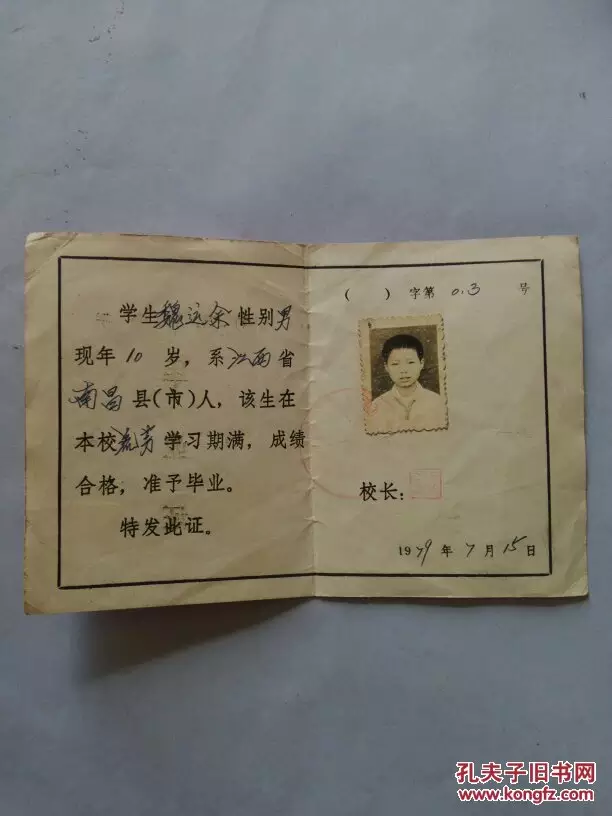 学生魏远余性别男
现年10岁，系江西省
南昌县(市)人，该生在
本校流芳学习期满，成绩
合格，准予毕业。
特发此证。
(  )字第 0.3 号
校长：
1979年7月15日
孔夫子旧书网
www.kongfz.com